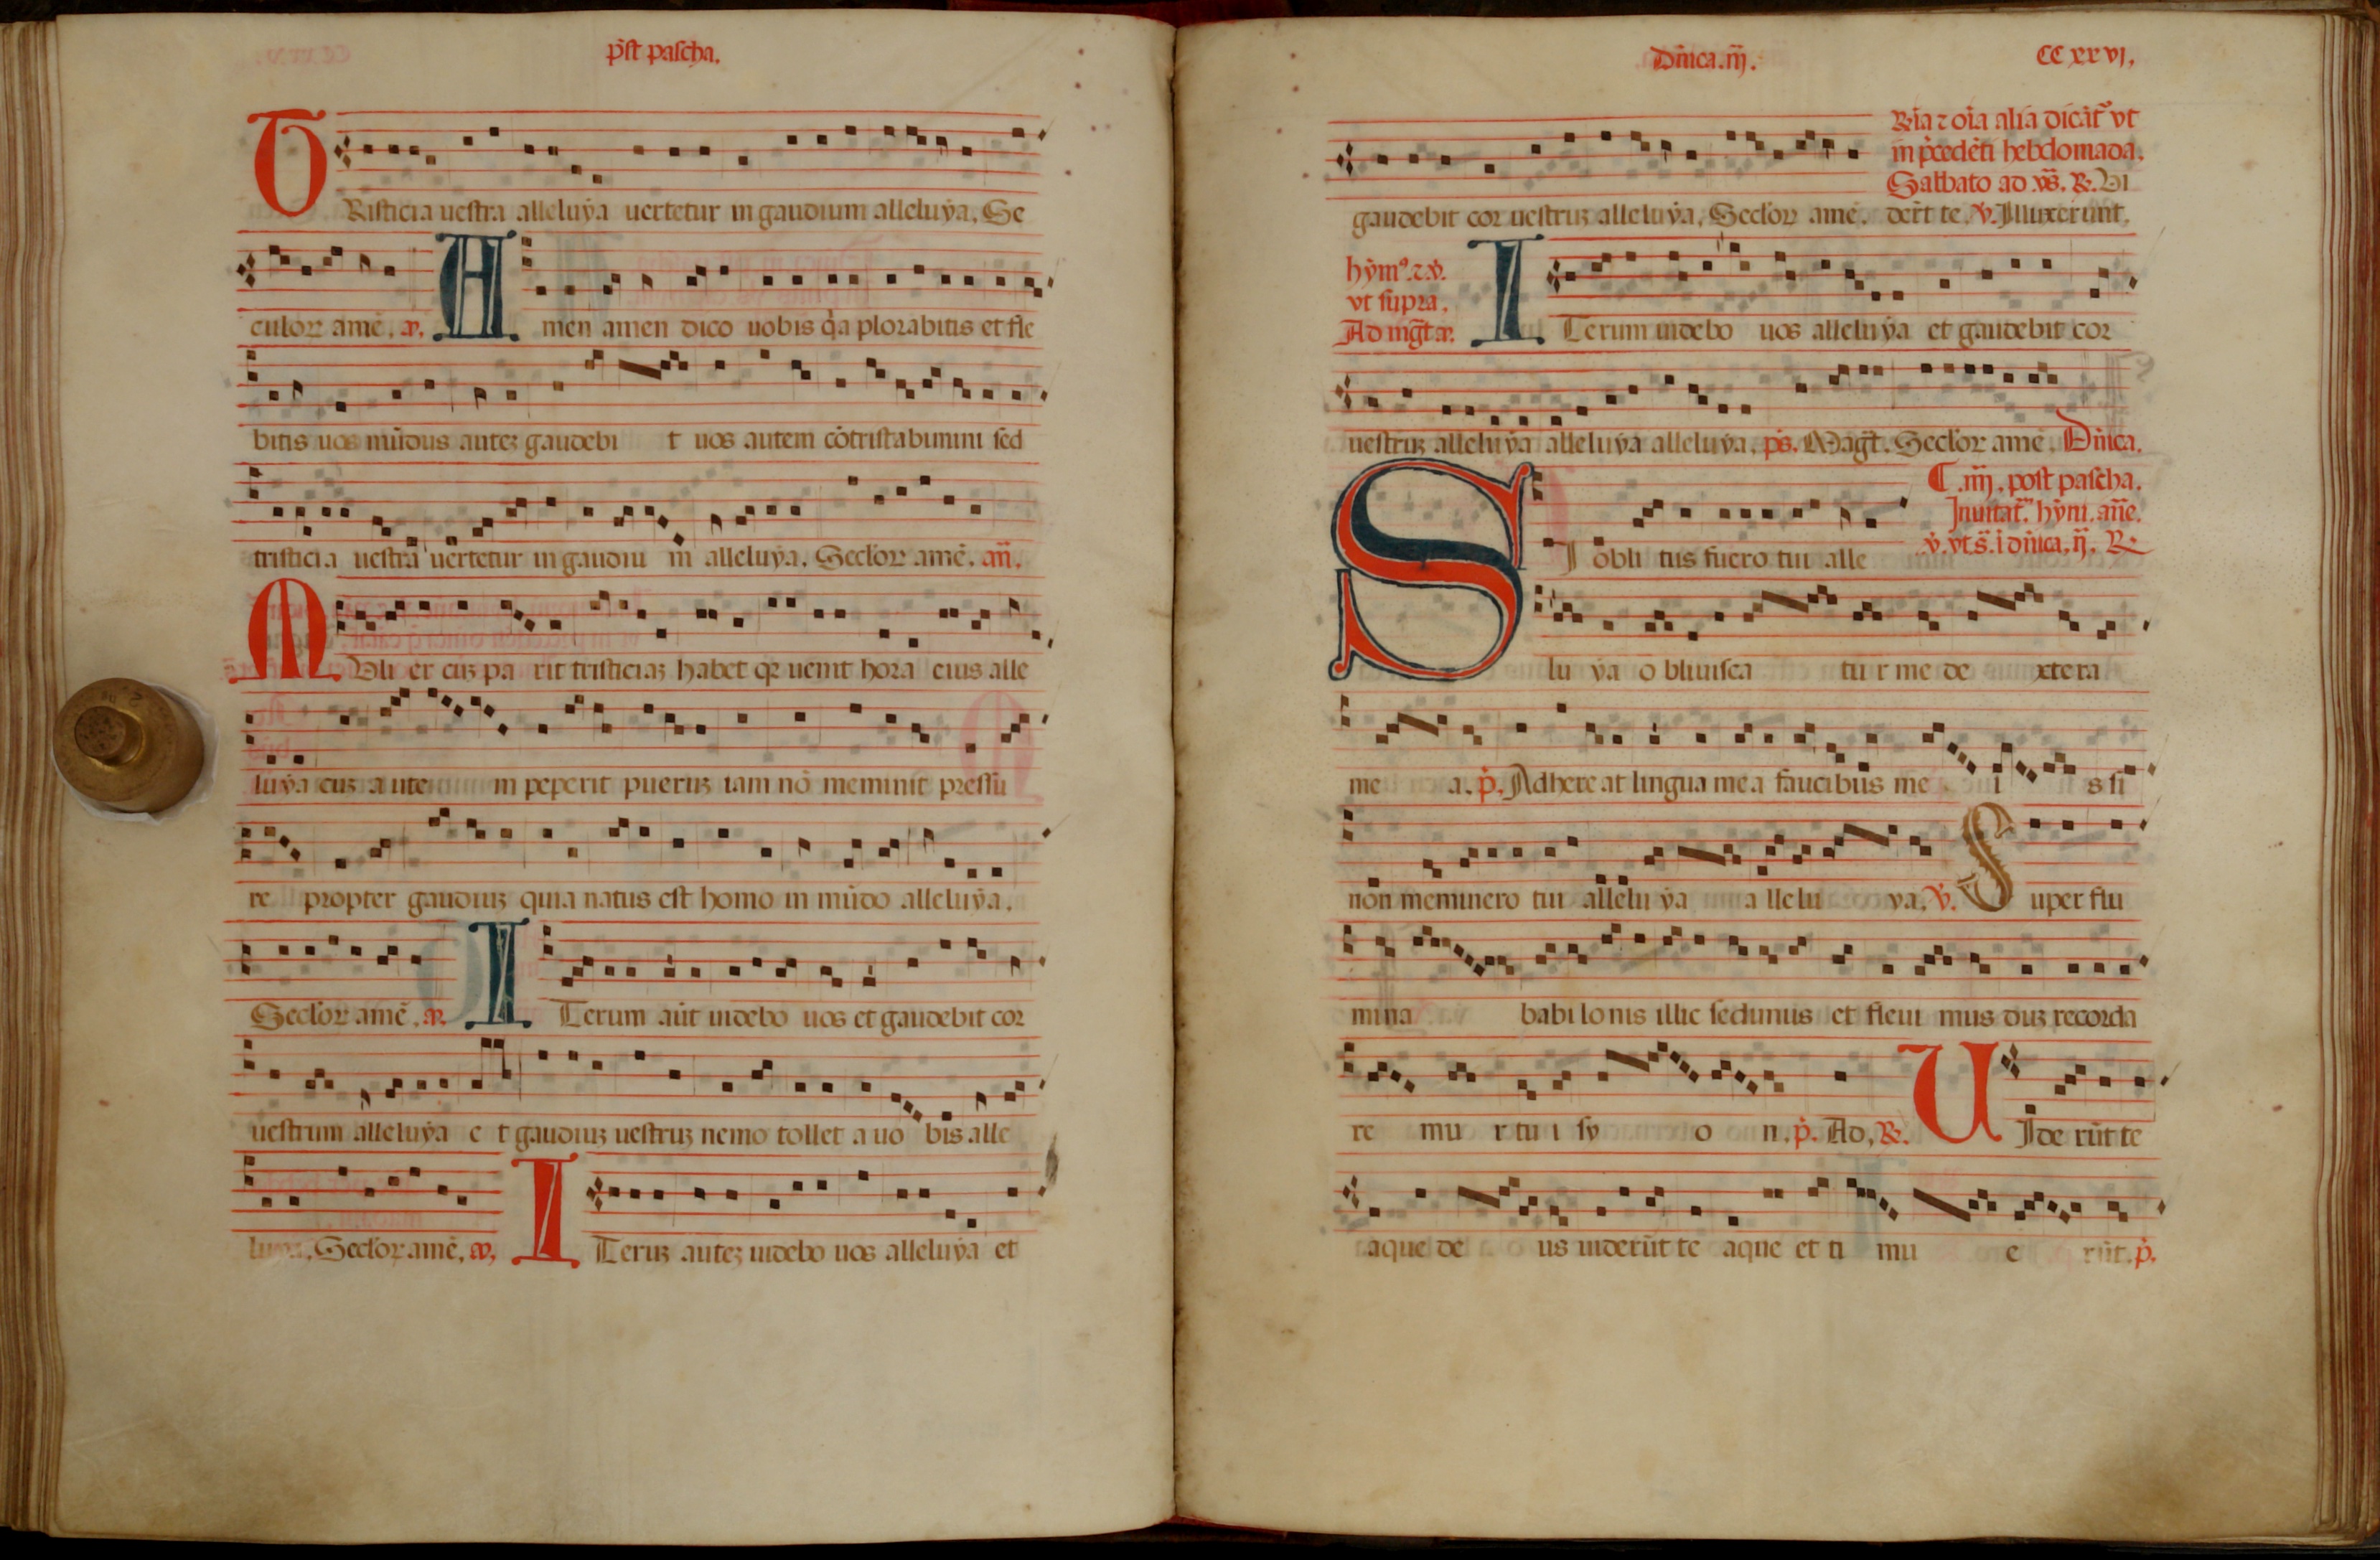 pꝰt pascha.
TRisticia uestra alleluya uertetur in gaudium alleluya. Se
culoꝝ amē. an̄. Amen amen dico uobis q̇a plorabitis et fle
bitis uos mūdus autez gaudebi t uos autem cōtristabimini sed
tristicia uestra uertetur in gaudiu m alleluya. Secl'oꝝ amē. an̄.
MUli er cuz pa rit tristiciaz habet qꝛ uenit hora eius alle
luya cuz aute m peperit pueruz iam nō meminit pressu
re propter gaudiuz quia natus est homo in mūdo alleluya.
Secl'oꝝ amē. an̄. ITerum aūt uidebo uos et gaudebit cor
uestrum alleluya e t gaudiuz uestruz nemo tollet a uo bis alle
luya. Secl'oꝝ amē. an̄. ITeruz autez uidebo uos alleluya et
Dn̄ica. iij.
CC xxvi.
Rīa ⁊ oīa alia dicāt᷑ vt
in p̄cedēti hebdomada.
Sabbato ad vs̄. ℞. Vi
gaudebit cor uestruz alleluya. Secl'oꝝ amē. der̄t te. ℣. Illuxerunt.
hym⁹. ⁊ ℣.
vt supra.
Ad mgt̄ an̄. ITerum uidebo uos alleluya et gaudebit cor
uestruz alleluya alleluya alleluya. ps̄. Magt̄. Secl'oꝝ amē. Dn̄ica.
¶ .iiij. post pascha.
Inuitat̄. hym. an̄e.
SI obli tus fuero tui alle ℣. vt s̄. i dn̄ica. ij. ℞
lu ya o bliuisca tu r me de xtera
me a. p̄. Adhere at lingua me a faucibus me i s si
non meminero tui allelu ya a llelu ya. ℣. Super flu
mina babi lo nis illic sedimus et fleui mus duz recorda
re mu r tu i sy o n. p̄. Ad. ℞. UIde rūt te
aque de us uiderūt te aque et ti mu e rūt. p̄.